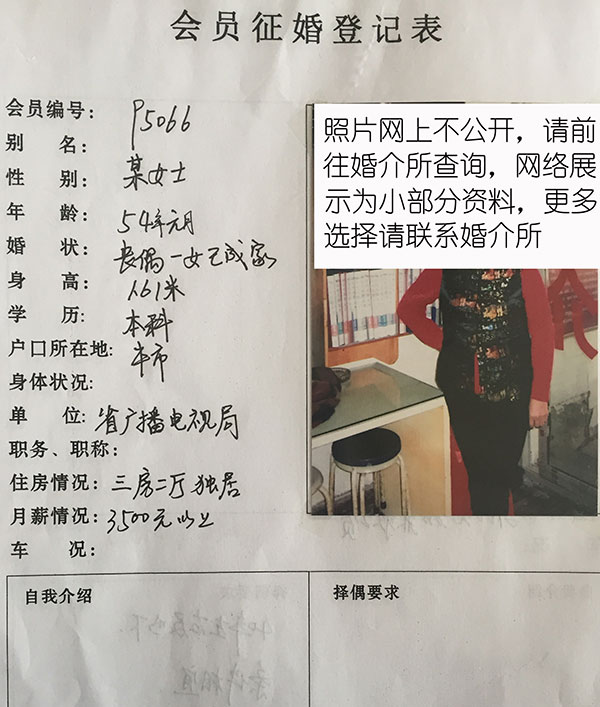 会员征婚登记表
会员编号: P5066
别 名:
性 别: 某女士
年 龄: 54年元月
婚 状: 丧偶一女已成家
身 高: 1.61米
学 历: 本科
户口所在地: 本市
身体状况:
单 位: 省广播电视局
职务、职称:
住房情况: 三房二厅 独居
月薪情况: 3500元以上
车 况:
照片网上不公开，请前
往婚介所查询，网络展
示为小部分资料，更多
选择请联系婚介所
自我介绍
择偶要求